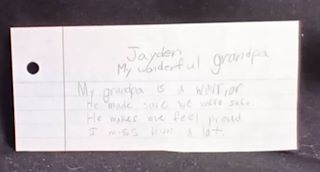 Jayden
My wonderful grandpa
My grandpa is a warrior
He made sure we were safe.
He makes me feel proud
I miss him a lot.